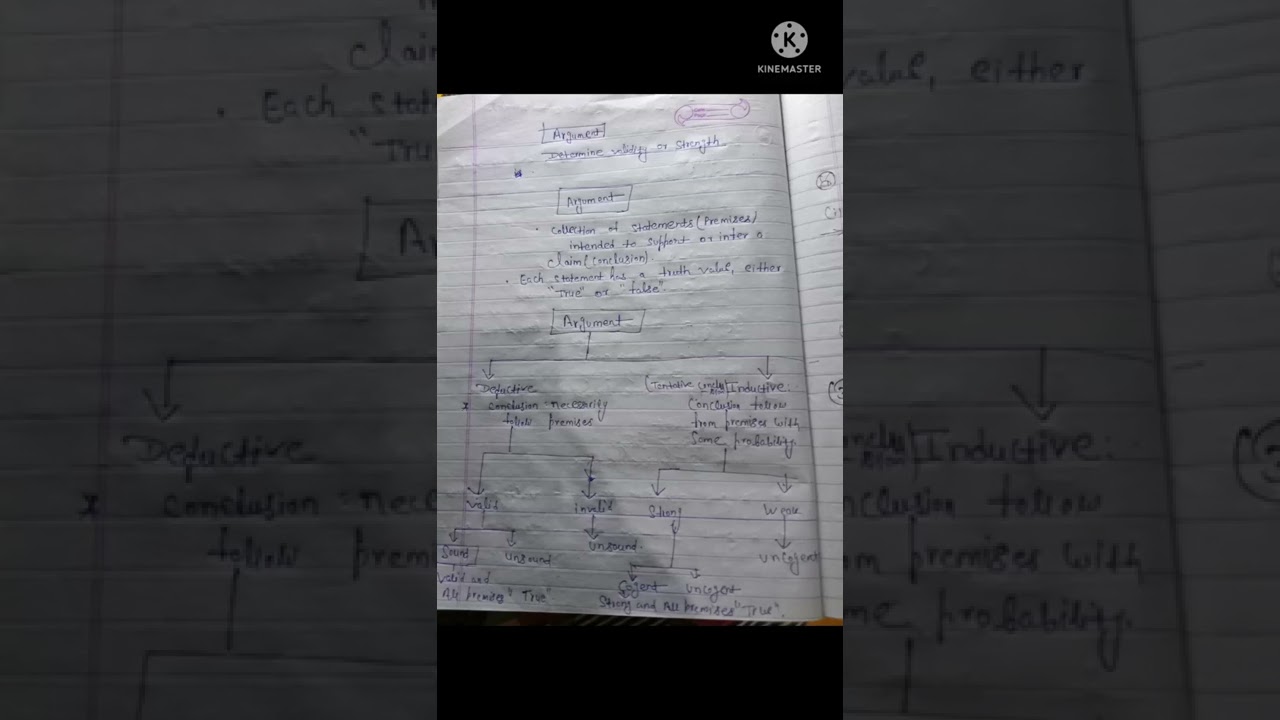 KINEMASTER
Argument
Determine validity or Strength
Argument
• Collection of statements (Premises)
intended to support or infer a
claim (conclusion).
• Each statement has a truth value, either
"True" or "false".
Argument
Deductive
(Tentative Inductive:
x conclusion necessarily
Conclusion follow
follow premises
from premises with
Some probability.
valid
invalid
Strong
Weak
Sound
unsound
unsound.
Cogent
uncogent
uncogent
Valid and
All premises "True"
Strong and All premises "True".